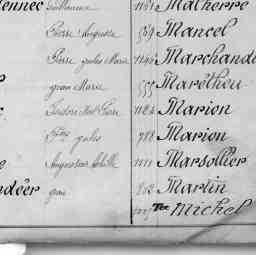 ennec Guillaume 1181 Malherre
Pierre Auguste 589 Mancel
Pierre Jules Marie Marchand
Jean Marie 555 Maréthou
Isidore Pierre 1124 Marion
Jules 788 Marion
Augustin Achille 1111 Marsollier
ndéer Jean 802 Martin
Michel